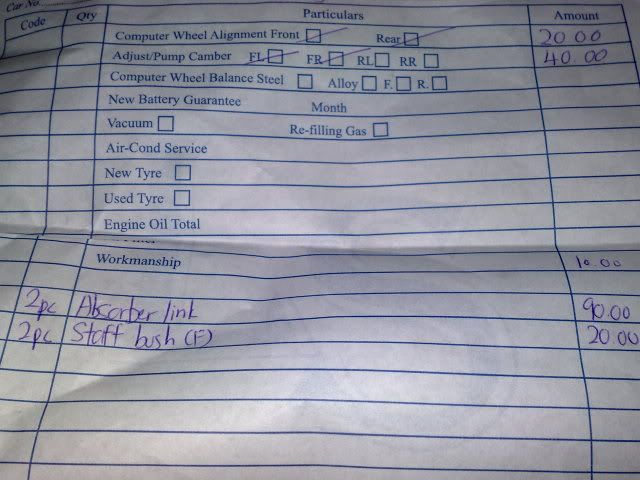 Car No.
Code Qty Particulars Amount
Computer Wheel Alignment Front Rear 20 00
Adjust/Pump Camber FL FR RL RR 40.00
Computer Wheel Balance Steel Alloy F. R.
New Battery Guarantee Month
Vacuum Re-filling Gas
Air-Cond Service
New Tyre
Used Tyre
Engine Oil Total
Workmanship 10.00
2pc Absorber link 90.00
2pc Staff bush (F) 20.00